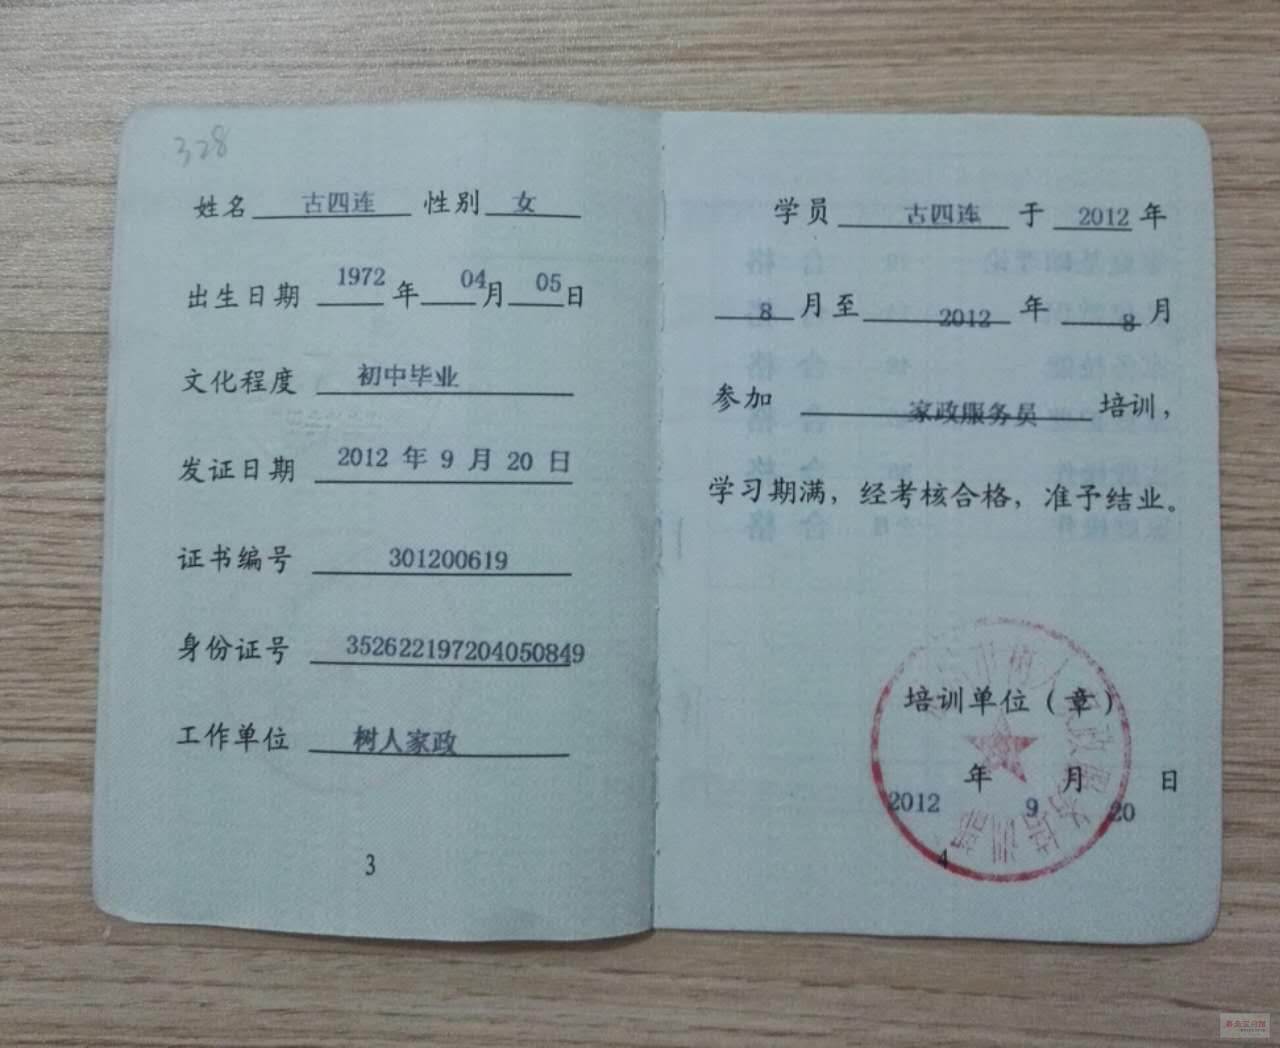 328
姓名 古四连 性别 女
出生日期 1972 年 04 月 05 日
文化程度 初中毕业
发证日期 2012 年 9 月 20 日
证书编号 301200619
身份证号 352622197204050849
工作单位 树人家政
3
学员 古四连 于 2012 年
8 月至 2012 年 8 月
参加 家政服务员 培训，
学习期满，经考核合格，准予结业。
市树人家政服务培训部
培训单位（章）
2012 年 9 月 20 日
4